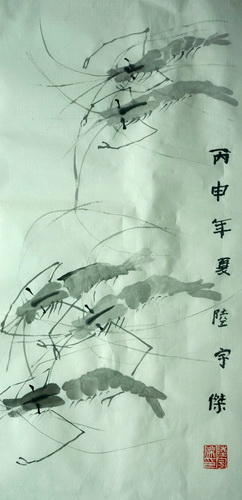 丙申年夏陸宇傑